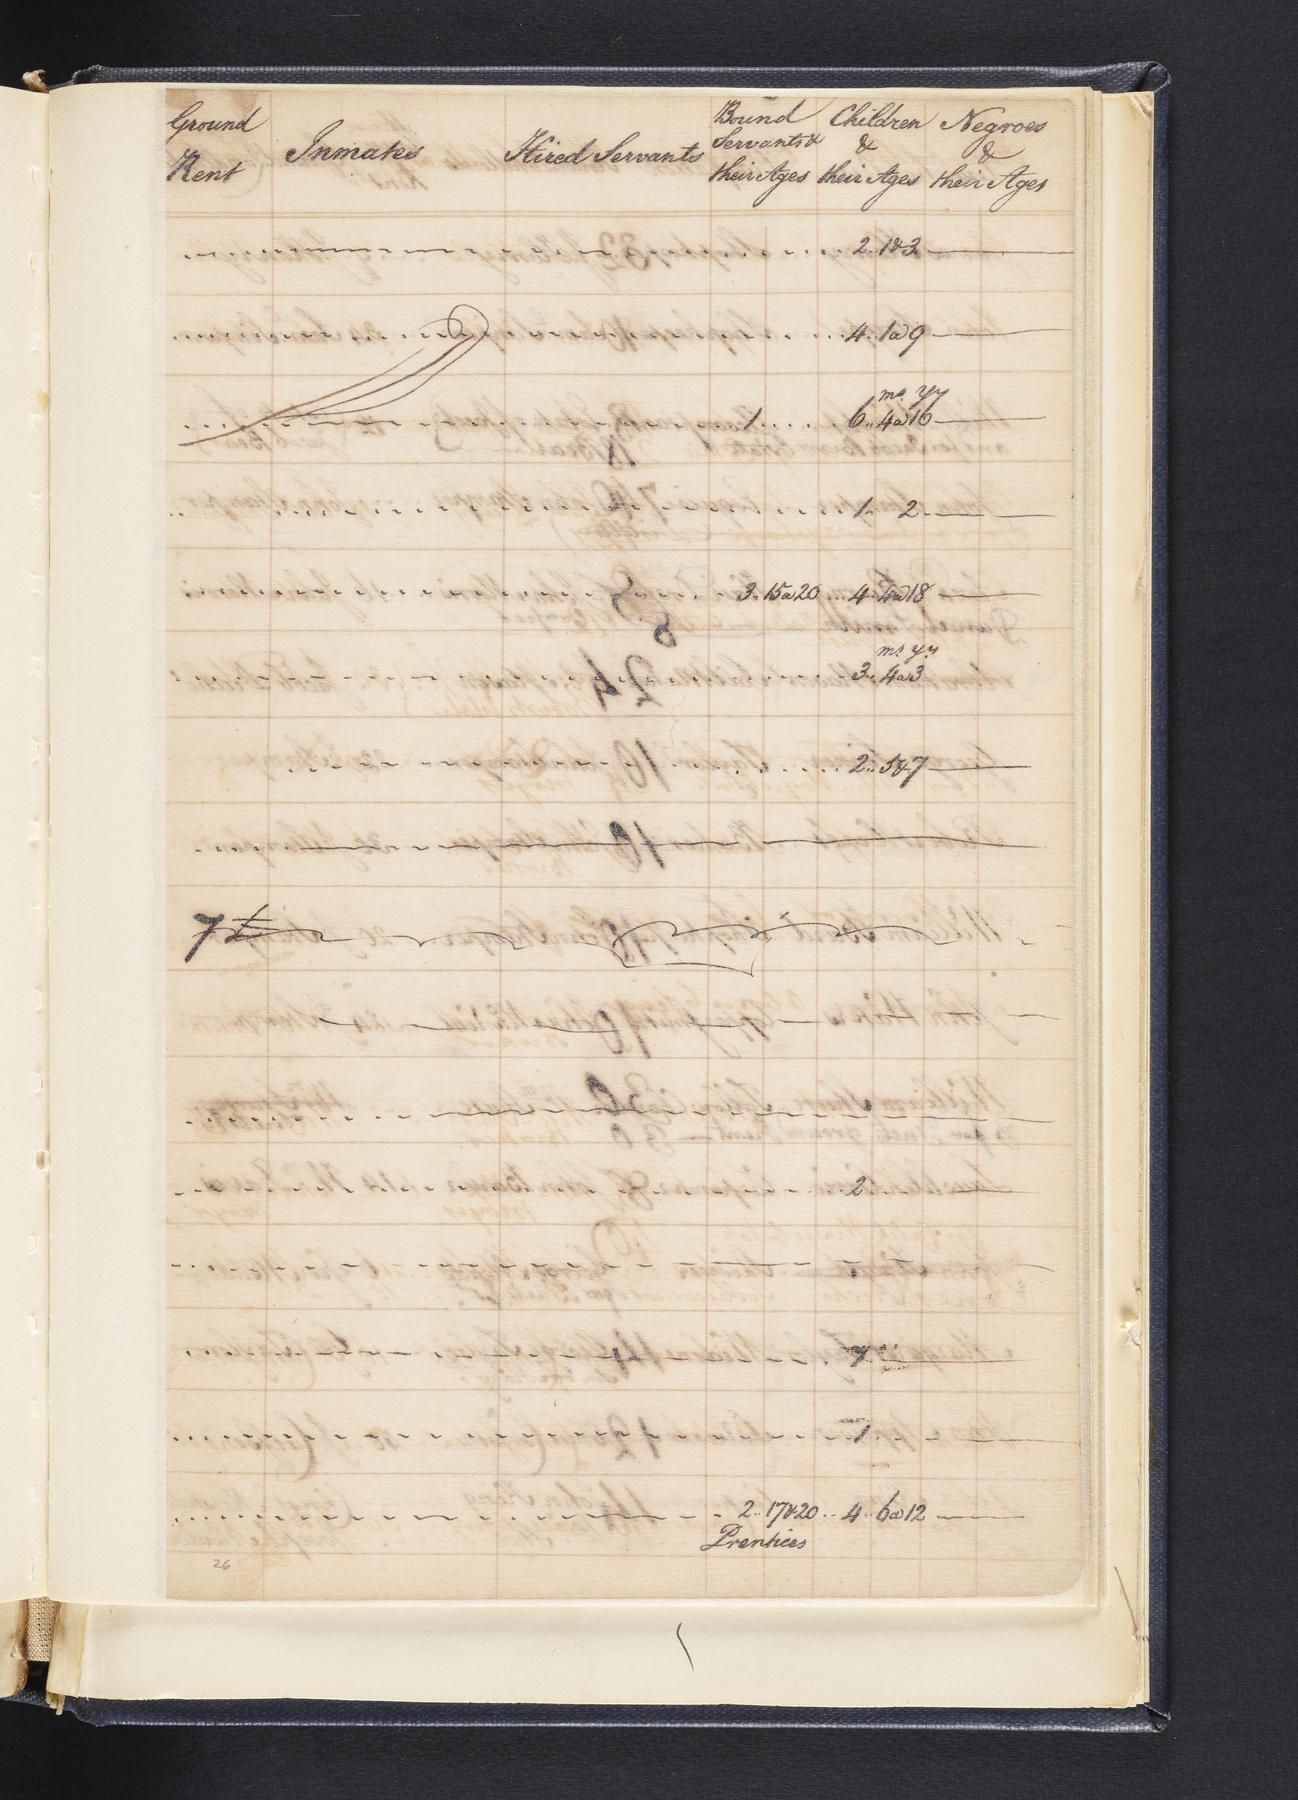 Ground Rent Inmates Hired Servants Bound Servants & their Ages Children & their Ages Negroes & their Ages
2.. 1&3
4.. 1a9
mo. yr
1 6.. 4a16
1.. 2
3.. 15a20 4.. 4a18
mo. yrs
3.. 4a3
2.. 5&7
7£
2
1
2.. 17&20 .. 4.. 6a12
Prentices
26